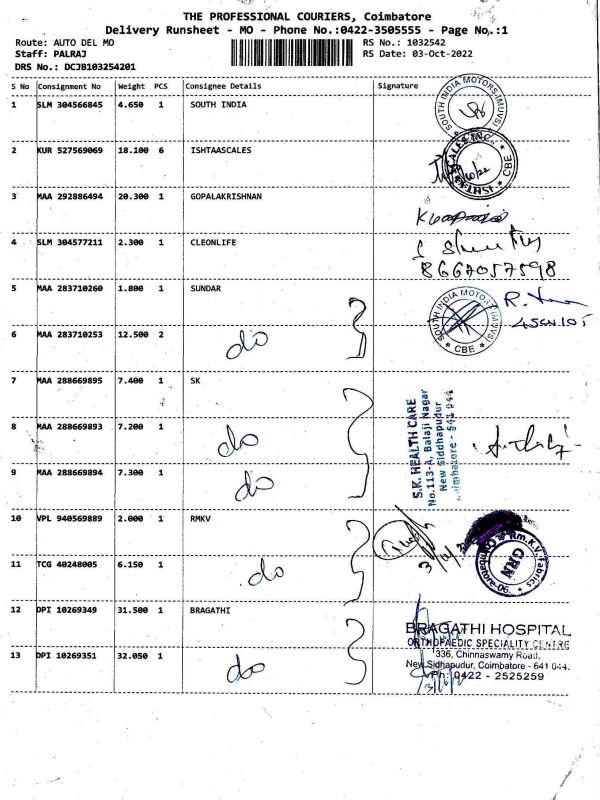 THE PROFESSIONAL COURIERS, Coimbatore
Delivery Runsheet - MO - Phone No.:0422-3505555 - Page No.:1
Route: AUTO DEL MO RS No.: 1032542
Staff: PALRAJ RS Date: 03-Oct-2022
DRS No.: DCJB103254201
S No Consignment No Weight PCS Consignee Details Signature
1 SLM 304566845 4.650 1 SOUTH INDIA
SOUTH INDIA MOTORS (MUVS)
2 KUR 527569069 18.100 6 ISHTAASCALES
CBE
3 MAA 292886494 20.300 1 GOPALAKRISHNAN
4 SLM 304577211 2.300 1 CLEONLIFE
8667057598
5 MAA 283710260 1.800 1 SUNDAR
SOUTH INDIA MOTORS (MUVS)
CBE
6 MAA 283710253 12.500 2 do
7 MAA 288669895 7.400 1 SK
8 MAA 288669893 7.200 1 do
9 MAA 288669894 7.300 1 do
S.K. HEALTH CARE
No.113-A, Balaji Nagar
New Siddhapudur
Coimbatore - 641 044
10 VPL 940569889 2.000 1 RMKV
Rm.K.V. Fabrics
GRN
11 TCG 40248005 6.150 1 do
12 DPI 10269349 31.500 1 BRAGATHI
BRAGATHI HOSPITAL
ORTHOPAEDIC SPECIALITY CENTRE
1336, Chinnaswamy Road,
New Sidhapudur, Coimbatore - 641 044.
Ph: 0422 - 2525259
13 DPI 10269351 32.050 1 do